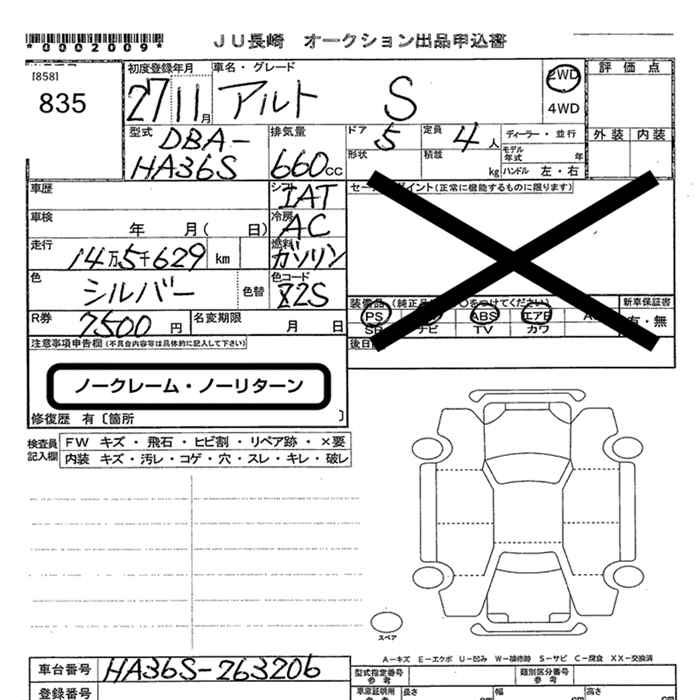 *0002009*
JU長崎 オークション出品申込書
[858]
835
初度登録年月
27 11月
車名・グレード
アルト S
2WD
4WD
評価点
外装 内装
型式
DBA-
HA36S
排気量
660cc
ドア 5
定員 4人
ディーラー・並行
形状
積載 kg
モデル年式 年
ハンドル 左・右
車歴
シフト
IAT
セールスポイント(正常に機能するものに限ります)
車検 年 月( 日)
冷房
AC
走行
14万5千629 km
燃料
ガソリン
色
シルバー
色替
色コード
Z2S
装備品(純正品に○をつけてください)
新車保証書
有・無
PS ABS エアB
SR ナビ TV カワ
R券
7500円
名変期限 月 日
注意事項申告欄(不具合内容等は具体的に記入して下さい)
後日
ノークレーム・ノーリターン
修復歴 有〔箇所 〕
検査員記入欄
FW キズ・飛石・ヒビ割・リペア跡・×要
内装 キズ・汚レ・コゲ・穴・スレ・キレ・破レ
スペア
A-キズ E-エクボ U-凹み W-補修跡 S-サビ C-腐食 XX-交換済
車台番号 HA36S-263206
型式指定番号 参考
類別区分番号 参考
登録番号
車庫証明用 参考
長さ cm
幅 cm
高さ cm